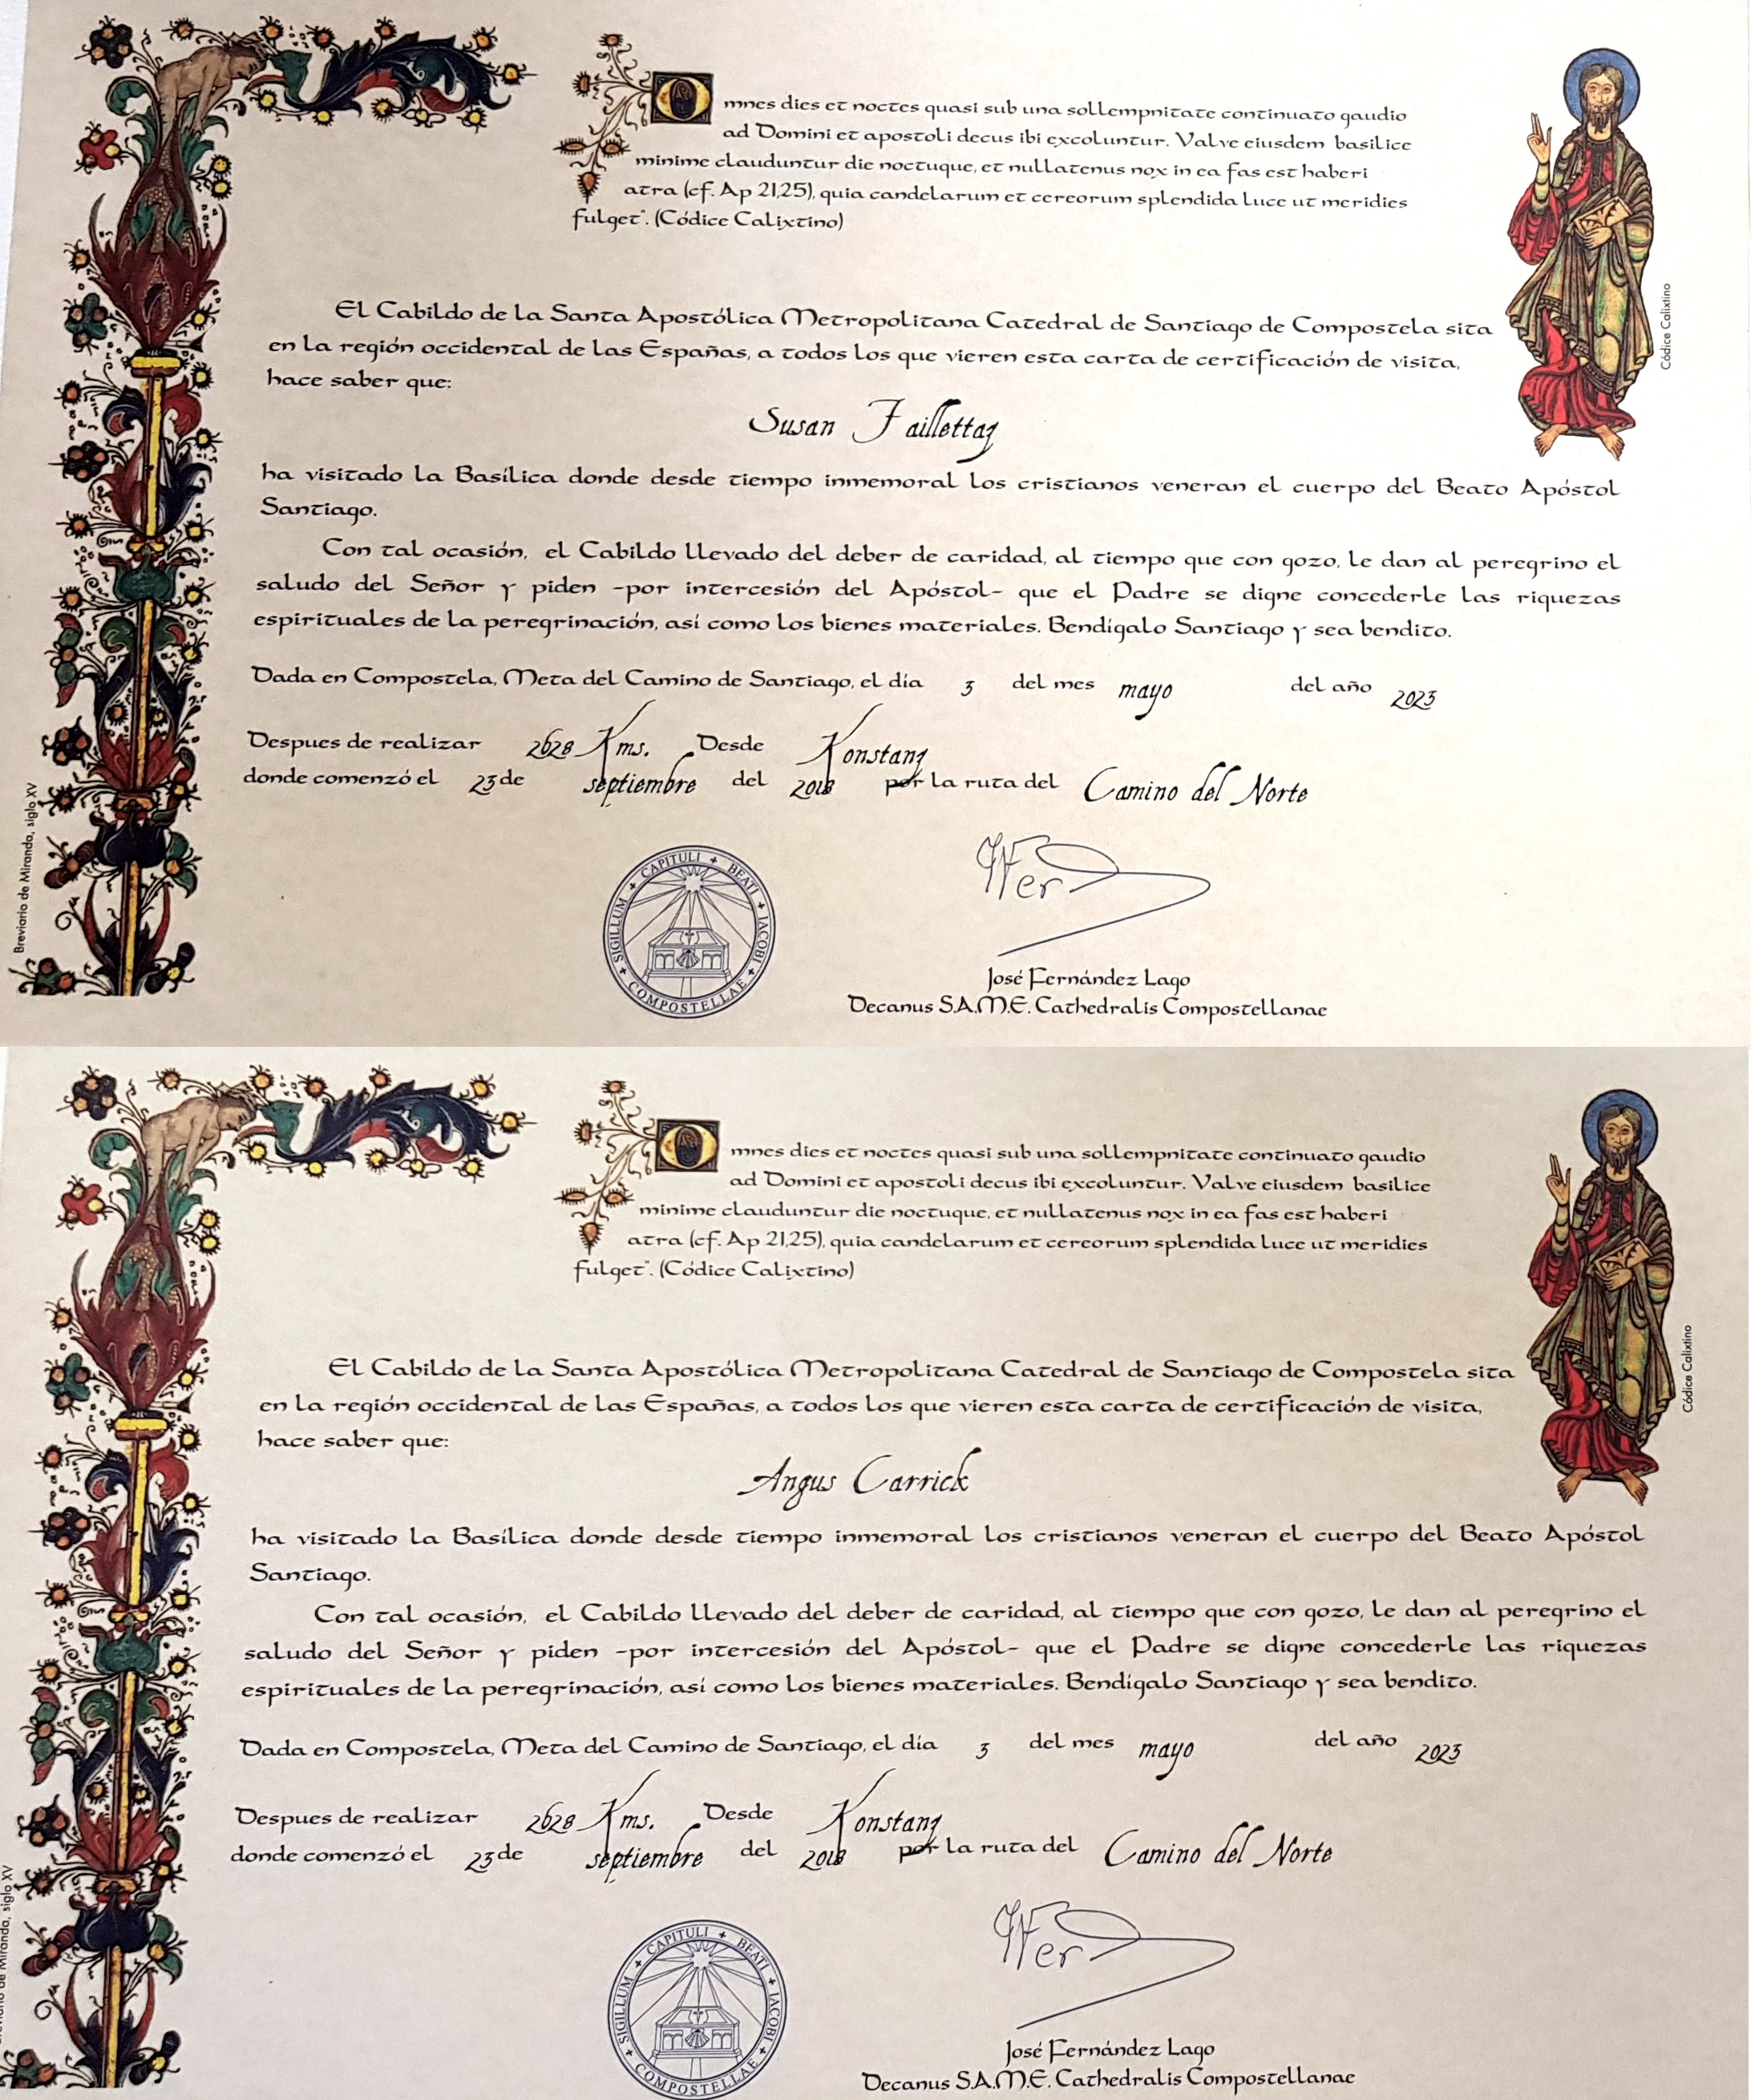 Omnes dies et noctes quasi sub una sollempnitate continuato gaudio
ad Domini et apostoli decus ibi excoluntur. Valve eiusdem basilice
minime clauduntur die noctuque, et nullatenus nox in ea fas est haberi
atra (cf. Ap 21,25), quia candelarum et cereorum splendida luce ut meridies
fulget". (Códice Calixtino)
Códice Calixtino
El Cabildo de la Santa Apostólica Metropolitana Catedral de Santiago de Compostela sita
en la región occidental de las Españas, a todos los que vieren esta carta de certificación de visita,
hace saber que:
Susan Faillettaz
ha visitado la Basílica donde desde tiempo inmemoral los cristianos veneran el cuerpo del Beato Apóstol
Santiago.
Con tal ocasión, el Cabildo llevado del deber de caridad, al tiempo que con gozo, le dan al peregrino el
saludo del Señor y piden -por intercesión del Apóstol- que el Padre se digne concederle las riquezas
espirituales de la peregrinación, así como los bienes materiales. Bendígalo Santiago y sea bendito.
Dada en Compostela, Meta del Camino de Santiago, el día 3 del mes mayo del año 2023
Despues de realizar 2628 Kms. Desde Konstanz
donde comenzó el 23 de septiembre del 2018 por la ruta del Camino del Norte
Breviario de Miranda, siglo XV
SIGILLUM + CAPITULI + BEATI + IACOBI + COMPOSTELLAE +
José Fernández Lago
Decanus S.A.M.E. Cathedralis Compostellanae
Omnes dies et noctes quasi sub una sollempnitate continuato gaudio
ad Domini et apostoli decus ibi excoluntur. Valve eiusdem basilice
minime clauduntur die noctuque, et nullatenus nox in ea fas est haberi
atra (cf. Ap 21,25), quia candelarum et cereorum splendida luce ut meridies
fulget". (Códice Calixtino)
Códice Calixtino
El Cabildo de la Santa Apostólica Metropolitana Catedral de Santiago de Compostela sita
en la región occidental de las Españas, a todos los que vieren esta carta de certificación de visita,
hace saber que:
Angus Carrick
ha visitado la Basílica donde desde tiempo inmemoral los cristianos veneran el cuerpo del Beato Apóstol
Santiago.
Con tal ocasión, el Cabildo llevado del deber de caridad, al tiempo que con gozo, le dan al peregrino el
saludo del Señor y piden -por intercesión del Apóstol- que el Padre se digne concederle las riquezas
espirituales de la peregrinación, así como los bienes materiales. Bendígalo Santiago y sea bendito.
Dada en Compostela, Meta del Camino de Santiago, el día 3 del mes mayo del año 2023
Despues de realizar 2628 Kms. Desde Konstanz
donde comenzó el 23 de septiembre del 2018 por la ruta del Camino del Norte
de Miranda, siglo XV
SIGILLUM + CAPITULI + BEATI + IACOBI + COMPOSTELLAE +
José Fernández Lago
Decanus S.A.M.E. Cathedralis Compostellanae